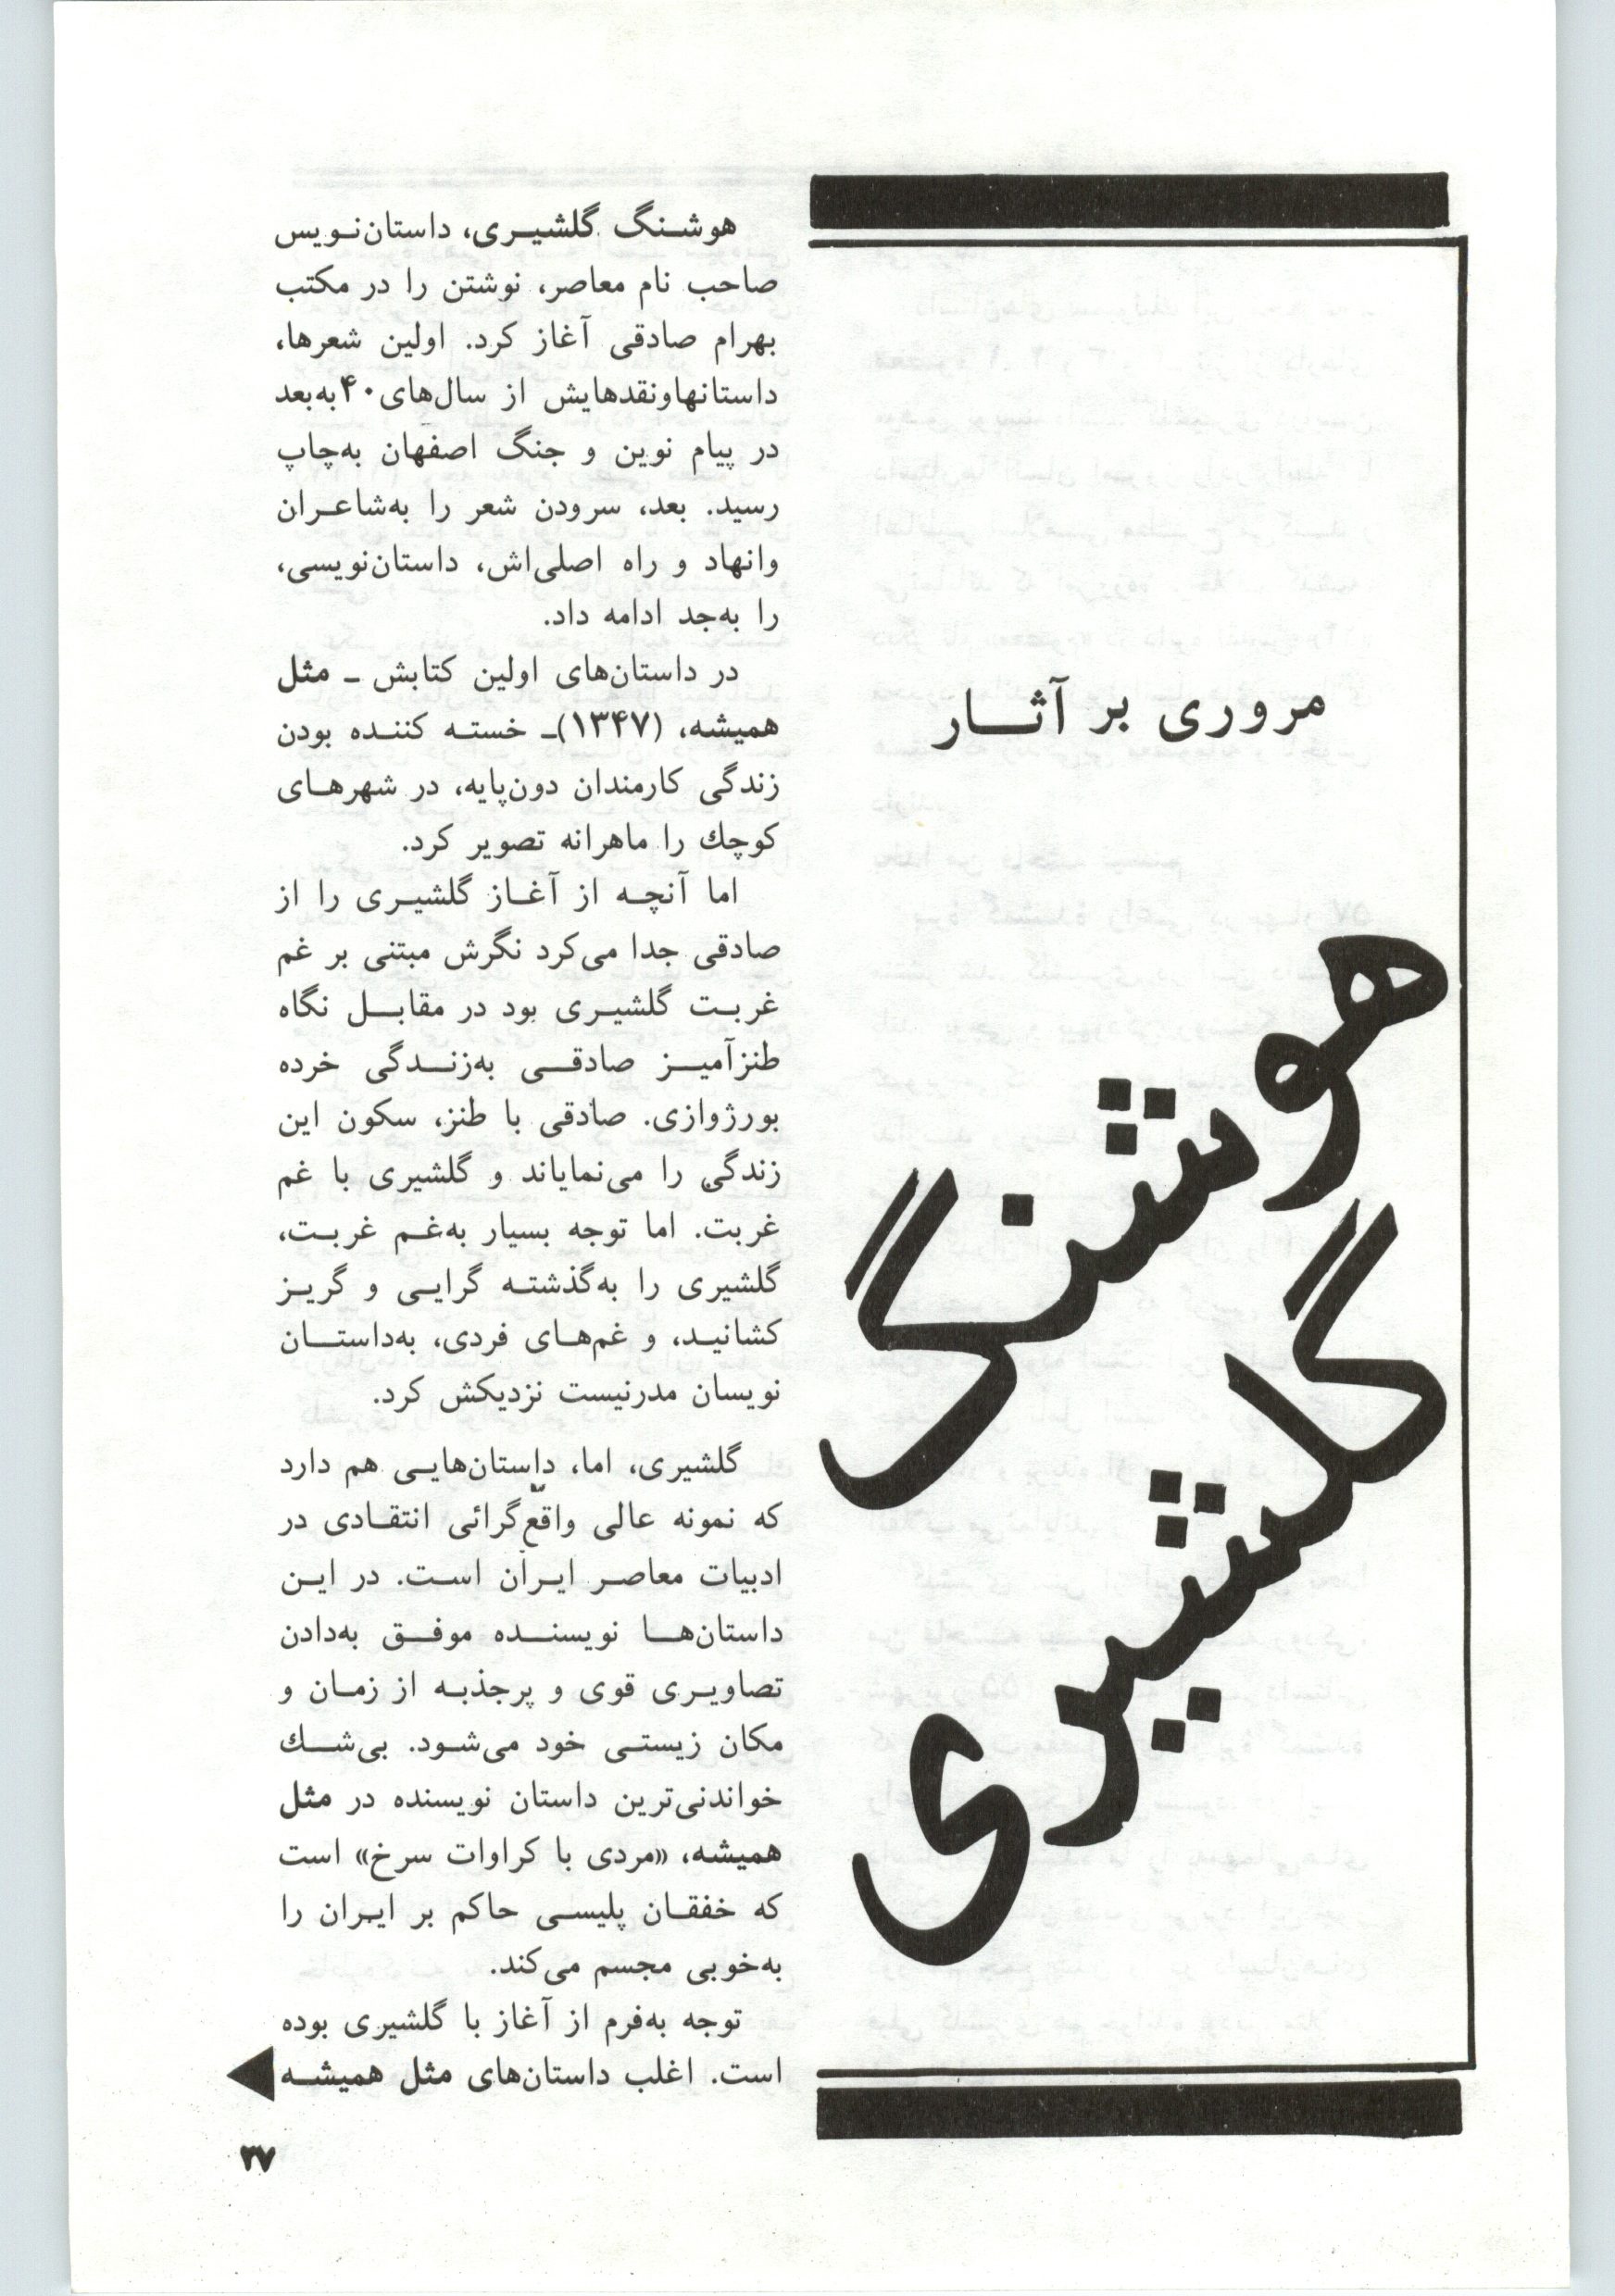 مروری بر آثار
هوشنگ
گلشیری
هوشنگ گلشیری، داستان‌نویس
صاحب نام معاصر، نوشتن را در مکتب
بهرام صادقی آغاز کرد. اولین شعرها،
داستانهاونقدهایش از سال‌های ۴۰به‌بعد
در پیام نوین و جنگ اصفهان به‌چاپ
رسید. بعد، سرودن شعر را به‌شاعران
وانهاد و راه اصلی‌اش، داستان‌نویسی،
را به‌جد ادامه داد.
در داستان‌های اولین کتابش ـ مثل
همیشه، (۱۳۴۷)ـ خسته کننده بودن
زندگی کارمندان دون‌پایه، در شهرهای
کوچك را ماهرانه تصویر کرد.
اما آنچه از آغاز گلشیری را از
صادقی جدا می‌کرد نگرش مبتنی بر غم
غربت گلشیری بود در مقابل نگاه
طنزآمیز صادقی به‌زندگی خرده
بورژوازی. صادقی با طنز، سکون این
زندگی را می‌نمایاند و گلشیری با غم
غربت. اما توجه بسیار به‌غم غربت،
گلشیری را به‌گذشته گرایی و گریز
کشانید، و غم‌های فردی، به‌داستان
نویسان مدرنیست نزدیکش کرد.
گلشیری، اما، داستان‌هایی هم دارد
که نمونه عالی واقع‌گرائی انتقادی در
ادبیات معاصر ایران است. در این
داستان‌ها نویسنده موفق به‌دادن
تصاویری قوی و پرجذبه از زمان و
مکان زیستی خود می‌شود. بی‌شك
خواندنی‌ترین داستان نویسنده در مثل
همیشه، «مردی با کراوات سرخ» است
که خفقان پلیسی حاکم بر ایران را
به‌خوبی مجسم می‌کند.
توجه به‌فرم از آغاز با گلشیری بوده
است. اغلب داستان‌های مثل همیشه
۳۷